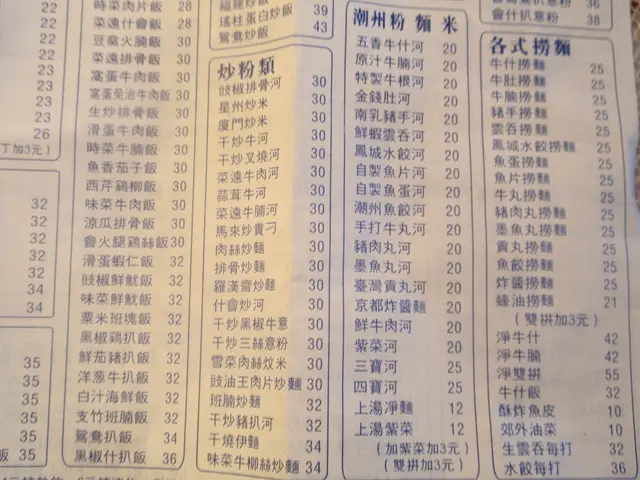 22
22
22
23
23
23
23
26
丁加3元)
32
32
32
32
34
34
35
35
35
35
飯 35
時菜肉片飯 28
菜遠什會飯 28
豆腐火腩飯 30
菜遠排骨飯 30
窩蛋牛肉飯 30
窩蛋免治牛肉飯 30
生炒排骨飯 30
滑蛋牛肉飯 30
時菜牛腩飯 30
魚香茄子飯 30
西芹鷄柳飯 30
味菜牛肉飯 30
涼瓜排骨飯 30
會火腿鷄絲飯 30
滑蛋蝦仁飯 32
豉椒鮮魷飯 32
味菜鮮魷飯 32
粟米班塊飯 32
黑椒鷄扒飯 32
鮮茄豬扒飯 32
洋葱牛扒飯 32
白汁海鮮飯 32
支竹班腩飯 32
鴛鴦扒飯 34
黑椒什扒飯 36
福建炒飯
瑤柱蛋白炒飯 39
鴛鴦炒飯 43
炒粉類
豉椒排骨河 30
星州炒米 30
廈門炒米 30
干炒牛河 30
干炒叉燒河 30
菜遠牛肉河 30
蒜茸牛河 30
菜遠牛腩河 30
馬來炒貴刁 30
肉絲炒麵 30
排骨炒麵 30
羅漢齋炒麵 30
什會炒河 30
干炒黑椒牛意 30
干炒三絲意粉 30
雪菜肉絲炆米 30
豉油王肉片炒麵 30
班腩炒麵 32
干炒豬扒河 32
干燒伊麵 34
味菜牛柳絲炒麵 34
潮州粉麵米
五香牛什河 20
原汁牛腩河 20
特製牛根河 20
金錢肚河 20
南乳豬手河 20
鮮蝦雲吞河 20
鳳城水餃河 20
自製魚片河 20
自製魚蛋河 20
潮州魚餃河 20
手打牛丸河 20
豬肉丸河 20
墨魚丸河 20
臺灣貢丸河 20
京都炸醬麵 20
鮮牛肉河 20
紫菜河 20
三寶河 25
四寶河 25
上湯淨麵 12
上湯紫菜 12
(加紫菜加3元)
(雙拼加3元)
會什扒意粉 38
36
各式撈麵
牛什撈麵 25
牛肚撈麵 25
牛腩撈麵 25
豬手撈麵 25
雲吞撈麵 25
鳳城水餃撈麵 25
魚蛋撈麵 25
魚片撈麵 25
牛丸撈麵 25
豬肉丸撈麵 25
墨魚丸撈麵 25
貢丸撈麵 25
魚餃撈麵 25
炸醬撈麵 25
蠔油撈麵 21
(雙拼加3元)
淨牛什 42
淨牛腩 42
淨雙拼 55
牛什飯 32
酥炸魚皮 10
郊外油菜 10
生雲吞每打 32
水餃每打 36